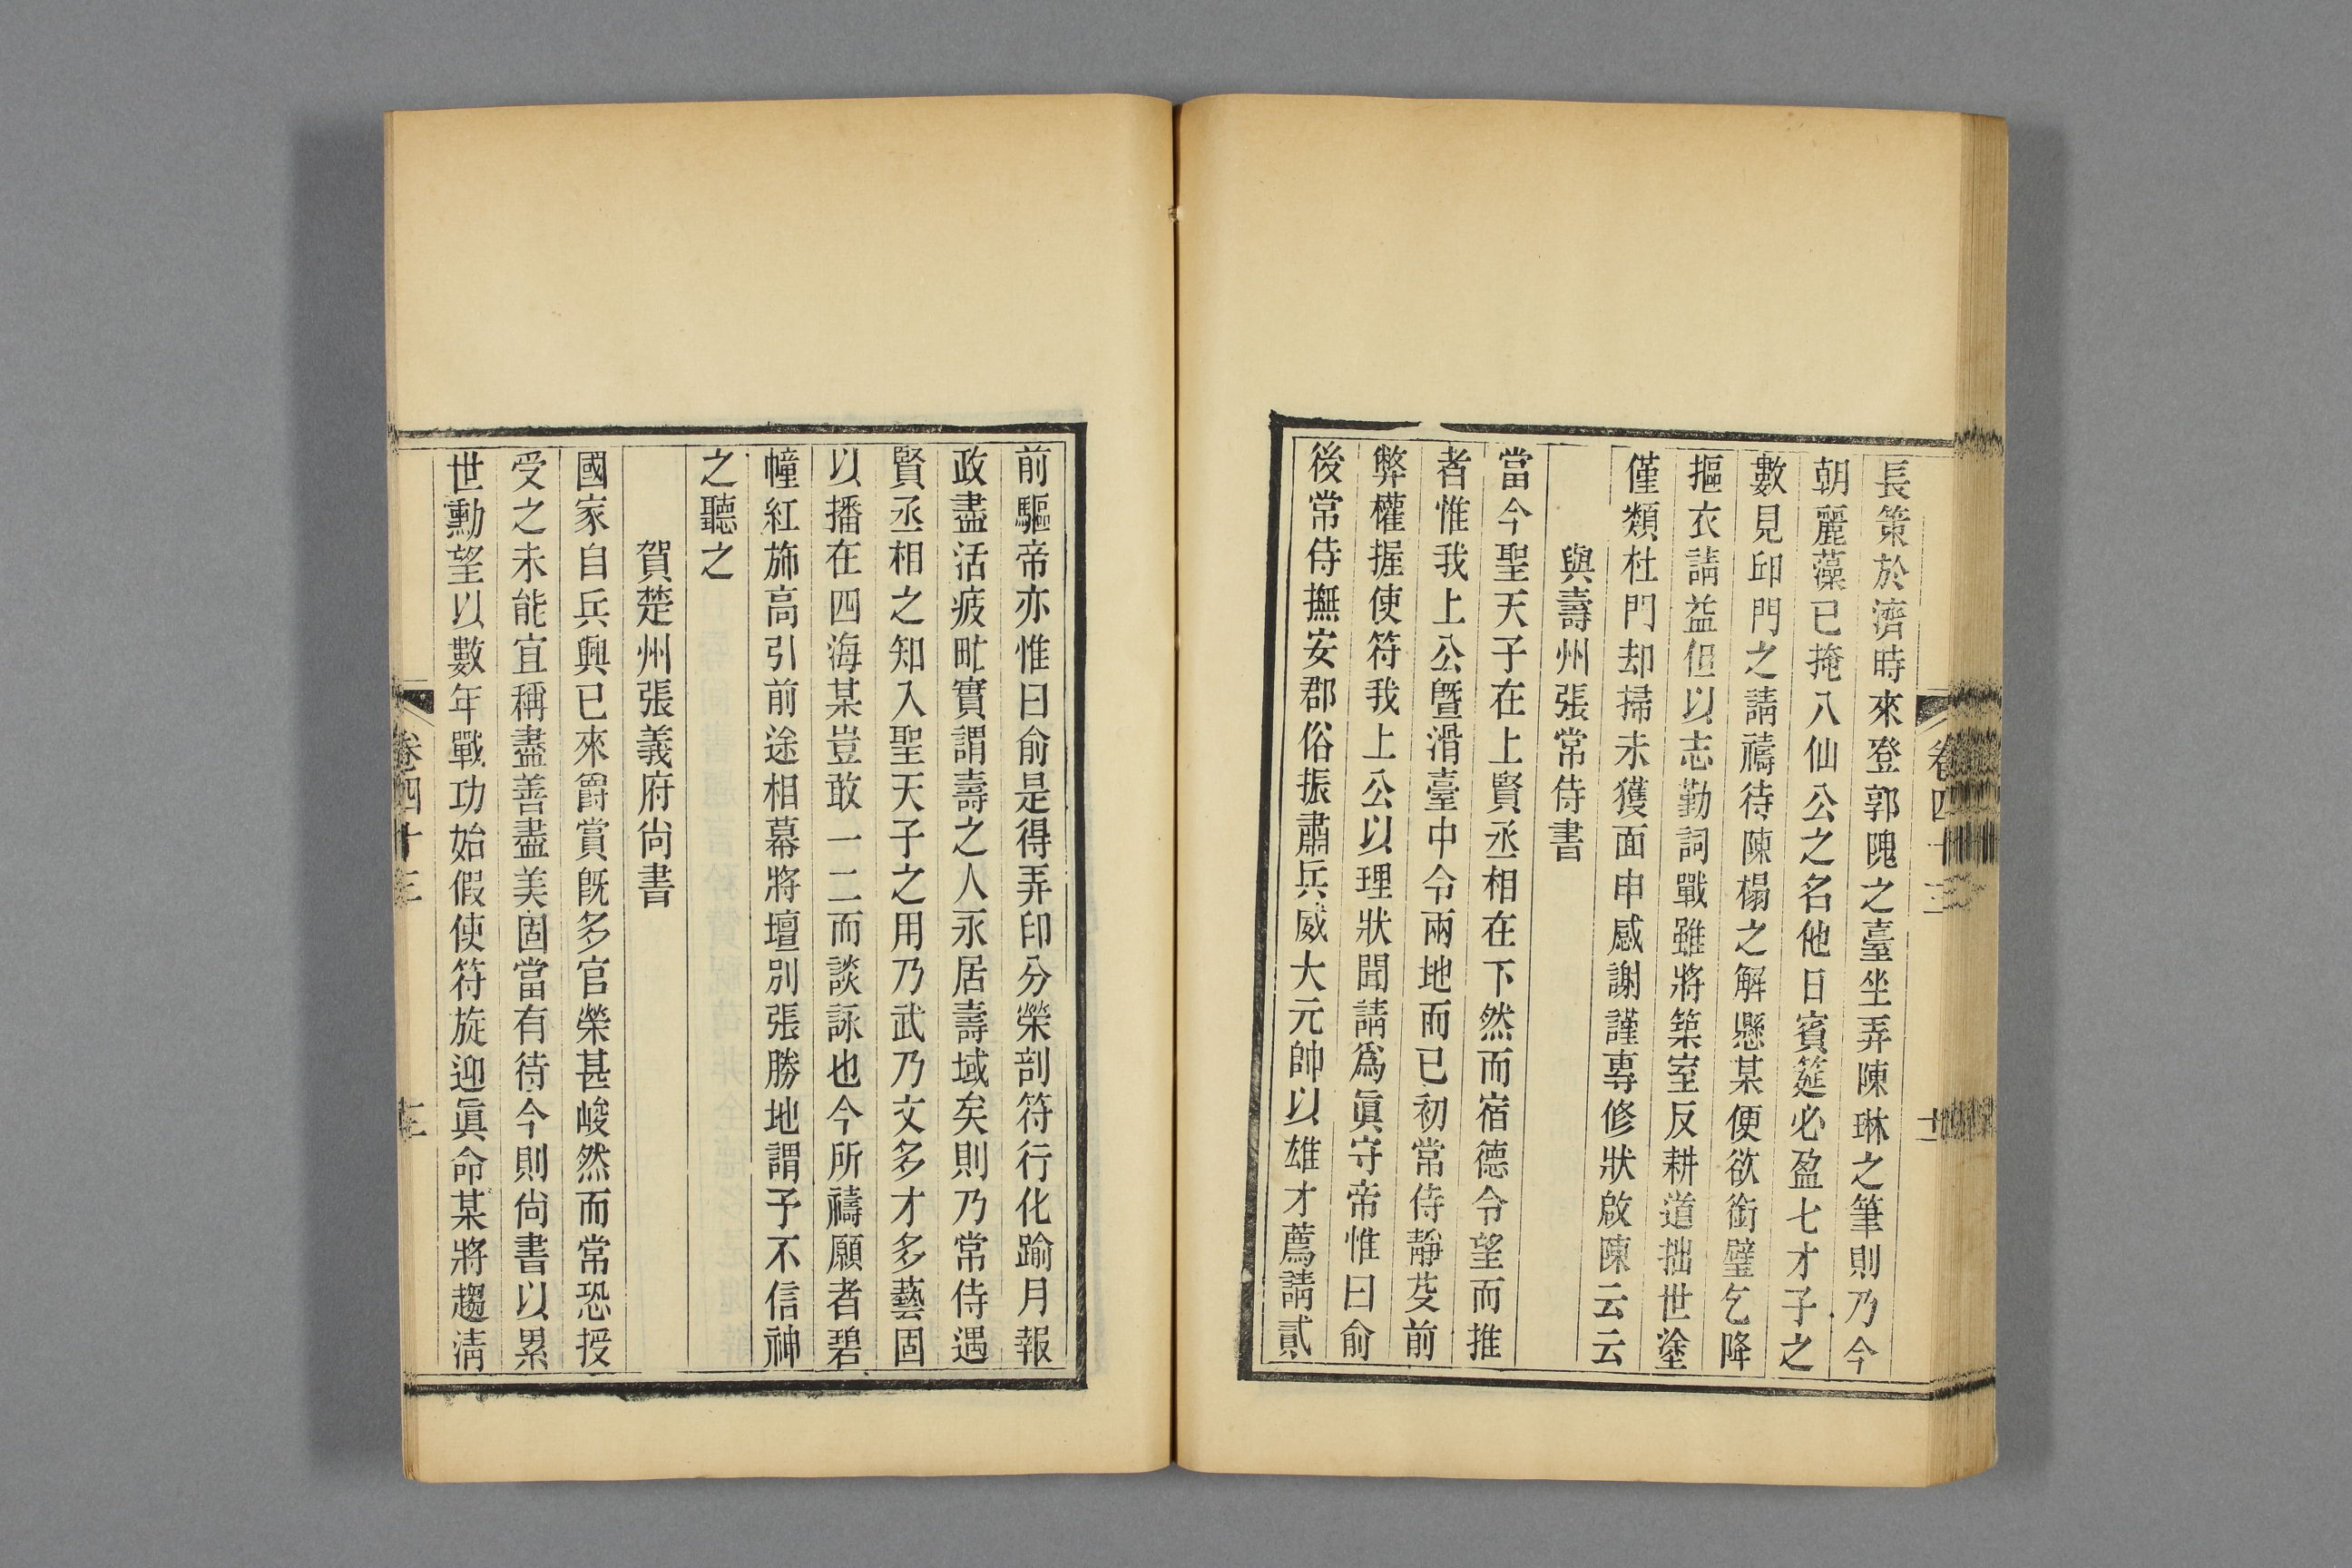 長策於濟時來登郭隗之臺坐弄陳琳之筆則乃今
朝麗藻已掩八仙公之名他日賓筵必盈七才子之
數見印門之請禱待陳榻之解懸某便欲銜璧乞降
摳衣請益但以志勤詞戰雖將築室反耕道拙世塗
僅類杜門却掃未獲面申感謝謹專修狀啟陳云云
與壽州張常侍書
當今聖天子在上賢丞相在下然而宿德令望而推
者惟我上公曁滑臺中令兩地而已初常侍靜芟前
弊權握使符我上公以理狀聞請爲眞守帝惟曰俞
後常侍撫安郡俗振肅兵威大元帥以雄才薦請貳
卷四十三
十二
前驅帝亦惟曰俞是得弄印分榮剖符行化踰月報
政盡活疲甿實謂壽之人永居壽域矣則乃常侍遇
賢丞相之知入聖天子之用乃武乃文多才多藝固
以播在四海某豈敢一二而談詠也今所禱願者碧
幢紅斾高引前途相幕將壇別張勝地謂予不信神
之聽之
賀楚州張義府尙書
國家自兵興已來爵賞旣多官榮甚峻然而常恐授
受之未能宜稱盡善盡美固當有待今則尙書以累
世勳望以數年戰功始假使符旋迎眞命某將趨淸
卷四十三
十三